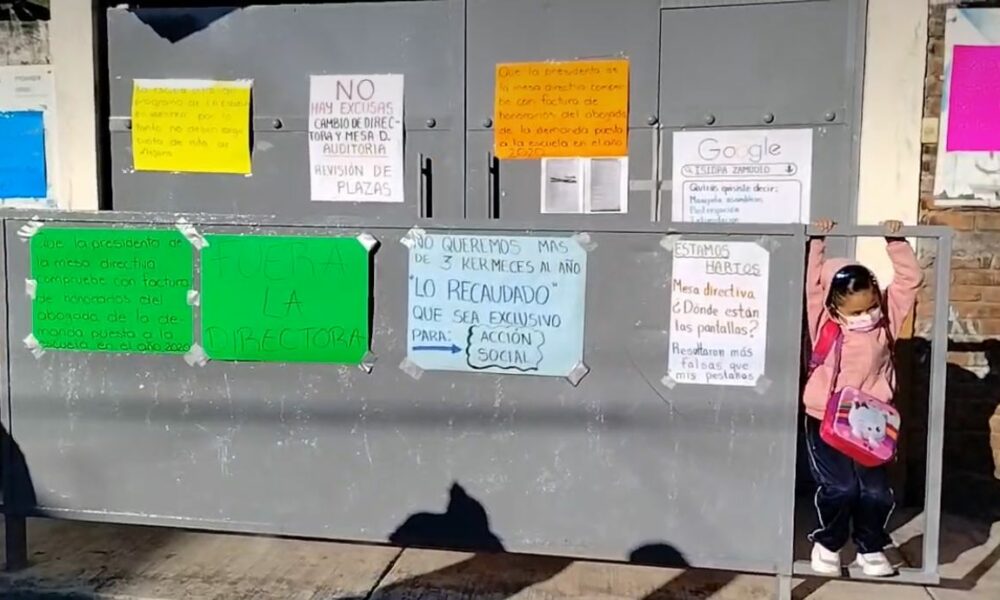 NO
HAY EXCUSAS
CAMBIO DE DIREC-
TORA Y MESA D.
AUDITORIA
REVISIÓN DE
PLAZAS
Que la presidenta de
la mesa directiva comprue-
be con factura de
honorarios del abogado
de la demanda puesta a
la escuela en el año
2020
Google
ISIDRA ZAMUDIO
Quizás quisiste decir:
Que la presidenta de
la mesa directiva
compruebe con factura
de honorarios del
abogado de la de-
manda puesta a la
escuela en el año 2020
FUERA
LA
DIRECTORA
NO QUEREMOS MAS
DE 3 KERMECES AL AÑO
"LO RECAUDADO"
QUE SEA EXCLUSIVO
PARA: ACCIÓN
SOCIAL
ESTAMOS
HARTOS
Mesa directiva
¿Dónde están
las pantallas?
Resultaron más
falsas que
mis pestañas